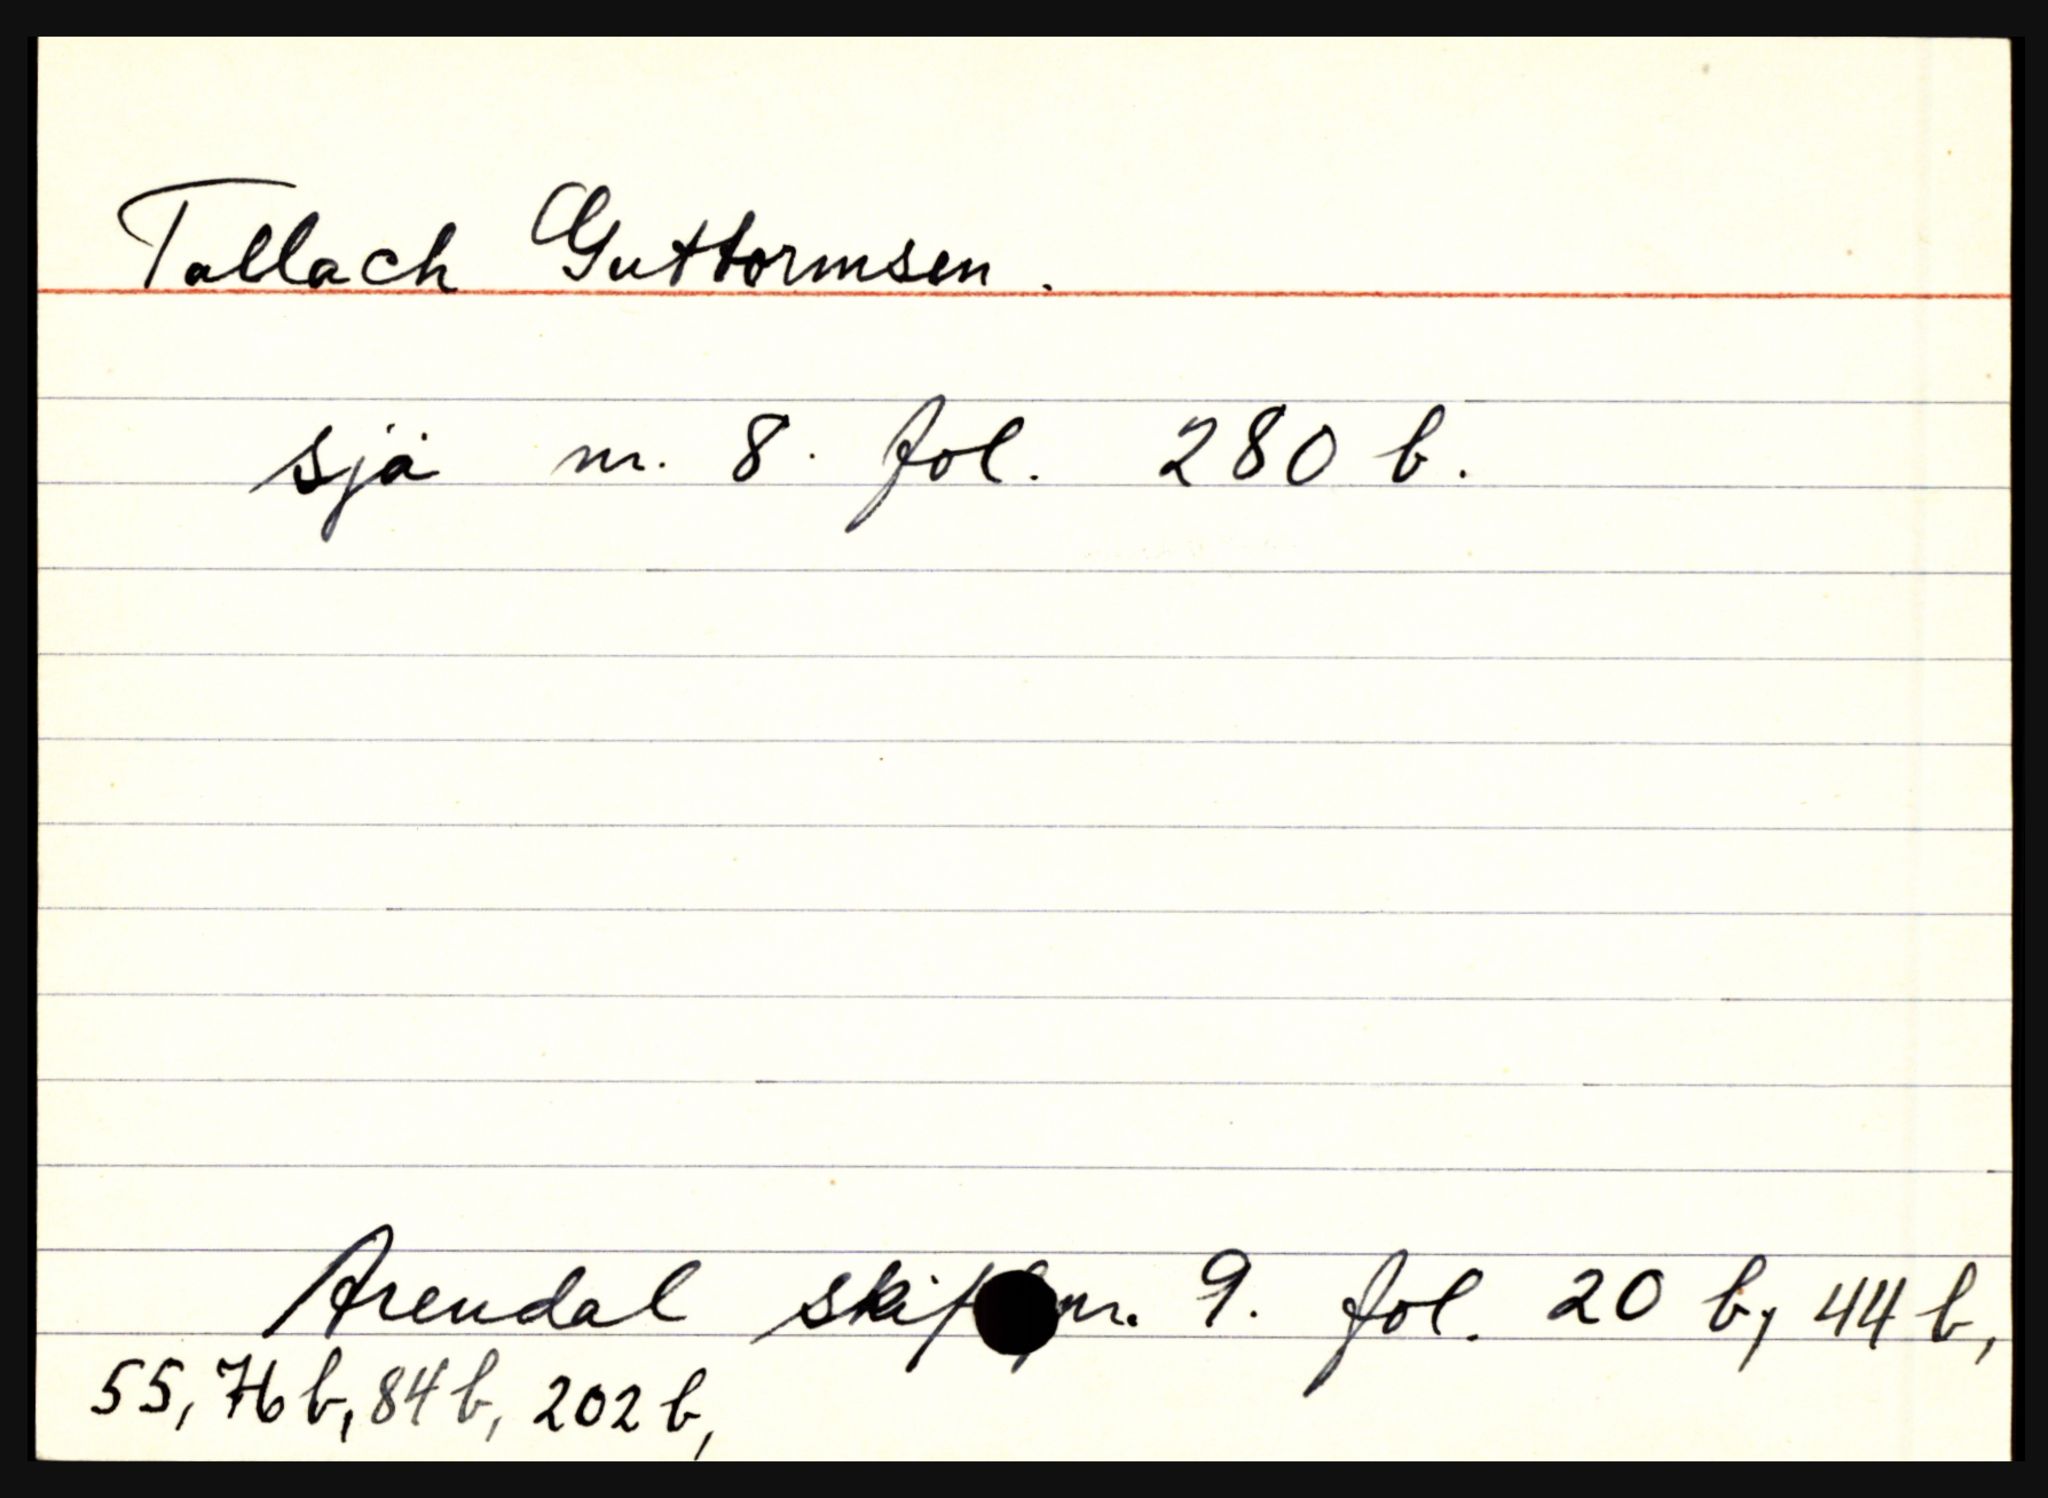 Tallach Guttormsen.
sjå nr. 8. fol. 280 b.
Arendal nr. 9. fol. 20 b, 44 b,
55, 76 b, 84 b, 202 b,